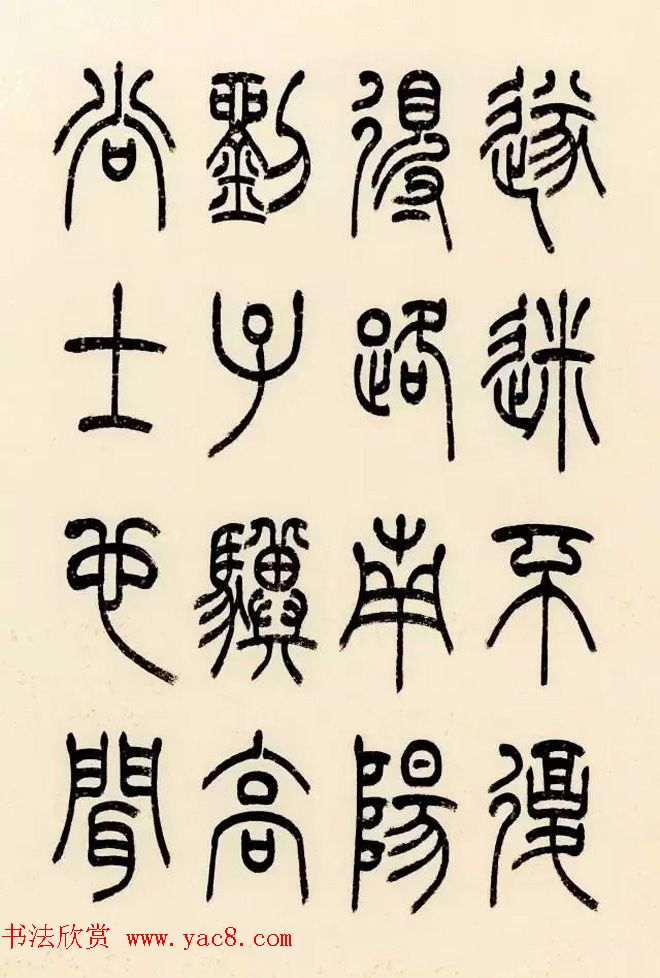 遂迷不復
得路南陽
劉子驥高
尚士也聞
书法欣赏 www.yac8.com